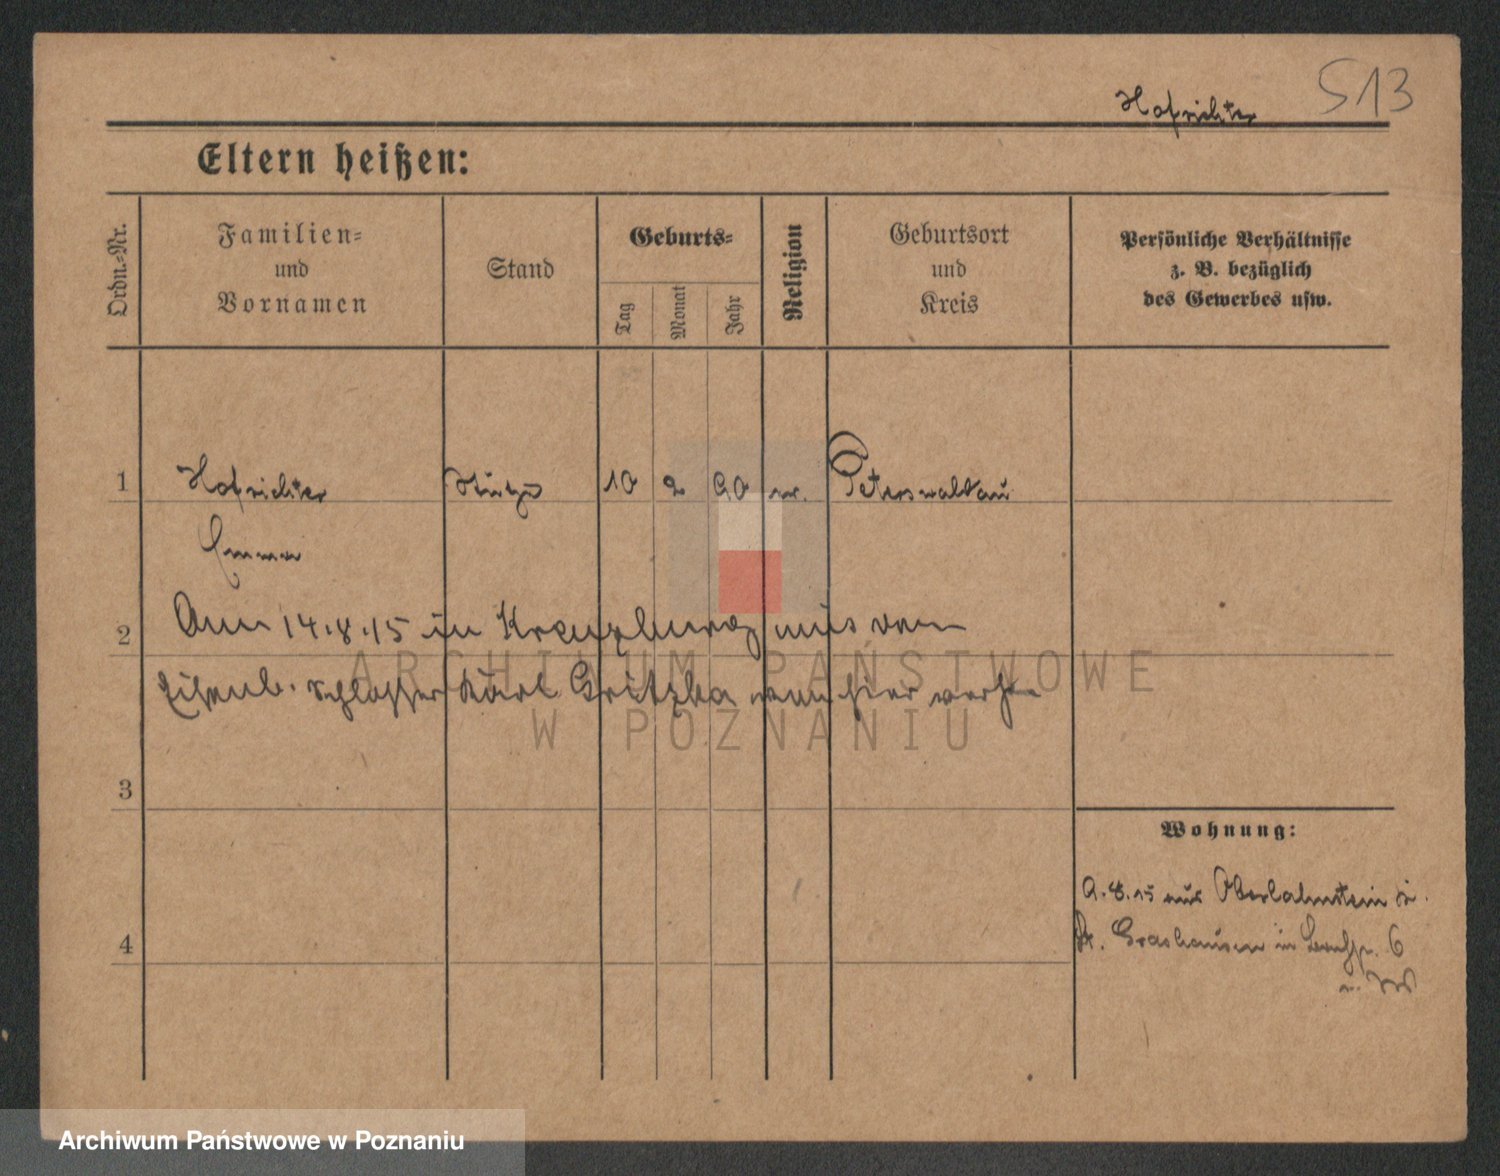 Hofrichter 513
Eltern heißen:
Ordn.-Nr.
Familien-
und
Vornamen
Stand
Geburts-
Tag
Monat
Jahr
Religion
Geburtsort
und
Kreis
Persönliche Verhältnisse
z. B. bezüglich
des Gewerbes usw.
1 Hofrichter Stütze 10 2 90 ev. Peterswaldau
Emma
2 Am 14.8.15 in Kreuzburg mit dem
Eisenb. Schlosser Karl Gritzka von hier
3
4
Wohnung:
9.8.15 aus Oberlahnstein
Grashausen in 6
ARCHIWUM PAŃSTWOWE
W POZNANIU
Archiwum Państwowe w Poznaniu